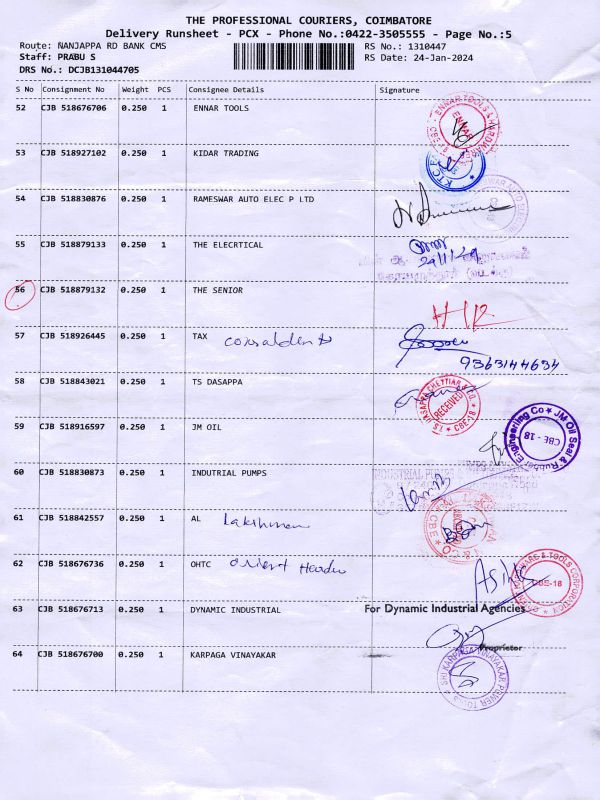 THE PROFESSIONAL COURIERS, COIMBATORE
Delivery Runsheet - PCX - Phone No.:0422-3505555 - Page No.:5
Route: NANJAPPA RD BANK CMS RS No.: 1310447
Staff: PRABU S RS Date: 24-Jan-2024
DRS No.: DCJB131044705
S No Consignment No Weight PCS Consignee Details Signature
52 CJB 518676706 0.250 1 ENNAR TOOLS
ENNAR TOOLS & HARDWARES
53 CJB 518927102 0.250 1 KIDAR TRADING
KTC
54 CJB 518830876 0.250 1 RAMESWAR AUTO ELEC P LTD
55 CJB 518879133 0.250 1 THE ELECRTICAL
24/1/24
56 CJB 518879132 0.250 1 THE SENIOR
57 CJB 518926445 0.250 1 TAX
9363144634
58 CJB 518843021 0.250 1 TS DASAPPA
RECEIVED
CBE-18
59 CJB 518916597 0.250 1 JM OIL
JM Oil Seal & Rubber Engineering Co
CBE - 18
60 CJB 518830873 0.250 1 INDUTRIAL PUMPS
INDUSTRIAL PUMPS
61 CJB 518842557 0.250 1 AL Lakshman
62 CJB 518676736 0.250 1 OHTC orient
& TOOLS CORPORATION
CBE-18
63 CJB 518676713 0.250 1 DYNAMIC INDUSTRIAL For Dynamic Industrial Agencies
Proprietor
64 CJB 518676700 0.250 1 KARPAGA VINAYAKAR
SRI KARPAGA VINAYAKAR POWER TOOLS